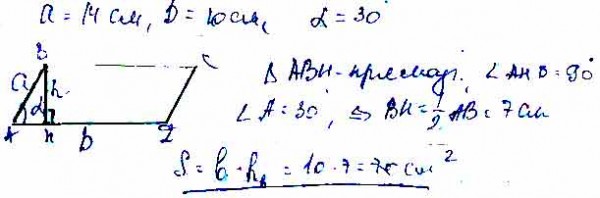 a = 14 см, b = 10 см, α = 30°
B
C
a
h
α
A
H
b
D
Δ ABH - прямоуг. ∠ AHB = 90°
∠ A = 30°, ⇒ BH = 1/2 AB = 7 см
S = b · h_b = 10 · 7 = 70 см²